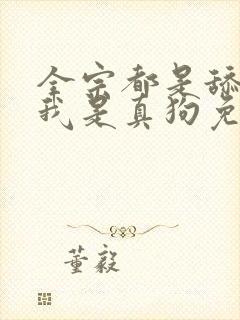 全宗都是舔
我是真狗免
董毅